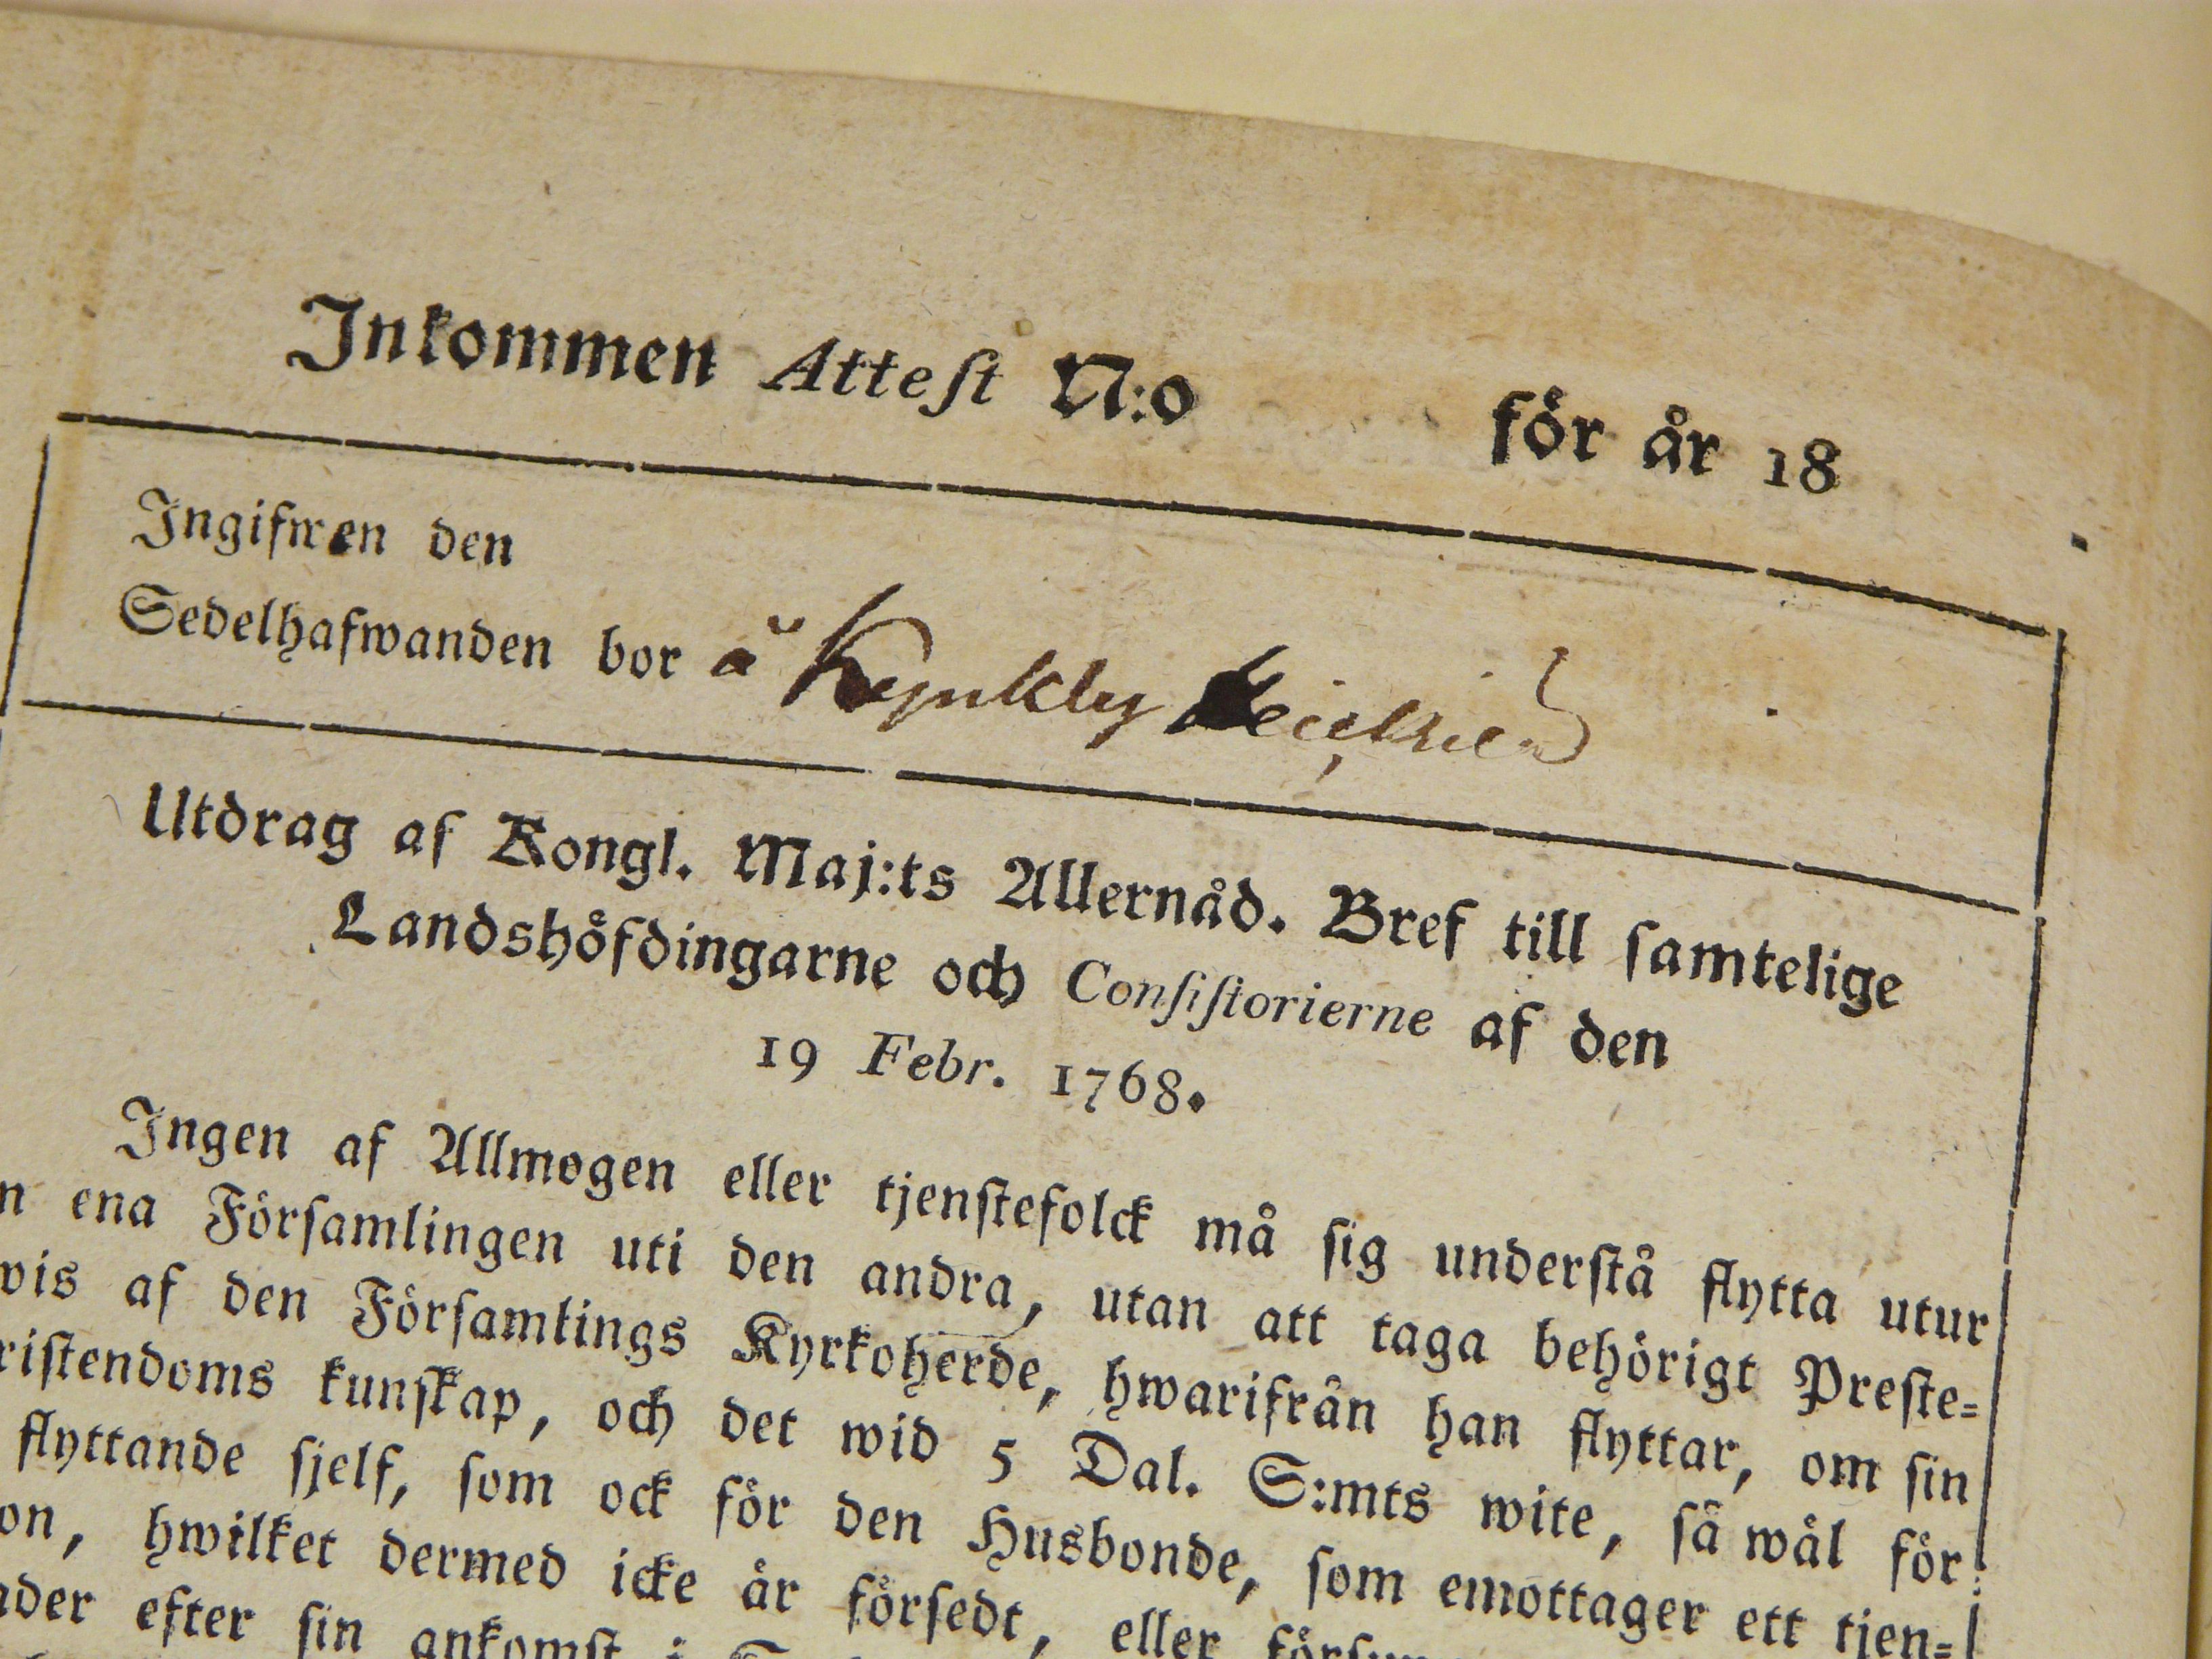 Inkommen Attest N:o för år 18
Ingifwen den
Sedelhafwanden bor å
Utdrag af Kongl. Maj:ts Allernåd. Bref till samtelige
Landshöfdingarne och Consistorierne af den
19 Febr. 1768.
Ingen af Allmogen eller tjenstefolck må sig understå flytta utur
n ena Församlingen uti den andra, utan att taga behörigt Preste=
wis af den Församlings Kyrkoherde, hwarifrån han flyttar, om sin
ristendoms kunskap, och det wid 5 Dal. S:mts wite, så wål för
flyttande sjelf, som ock för den Husbonde, som emottager ett tjen=
on, hwilket dermed icke är försedt, eller
ader efter sin ankomst i